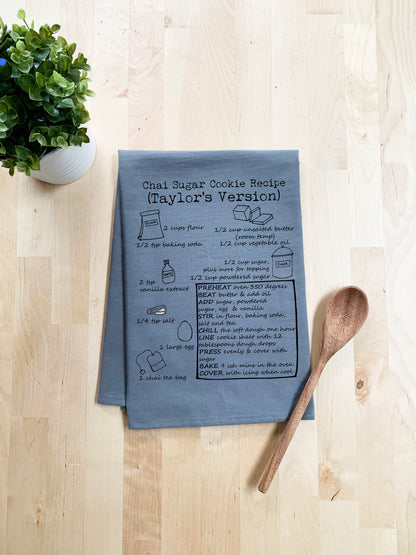 Chai Sugar Cookie Recipe
(Taylor's Version)
2 cups flour
1/2 tsp baking soda
1/2 cup unsalted butter
(room temp)
1/2 cup vegetable oil
1/2 cup sugar,
plus more for topping
1/2 cup powdered sugar
2 tsp
vanilla extract
1/4 tsp salt
1 large egg
1 chai tea bag
PREHEAT oven 350 degrees
BEAT butter & add oil
ADD sugar, powdered
sugar, egg & vanilla
STIR in flour, baking soda,
salt and tea
CHILL the soft dough one hour
LINE cookie sheet with 12
tablespoons dough drops
PRESS evenly & cover with
sugar
BAKE 9 ish mins in the oven
COVER with icing when cool